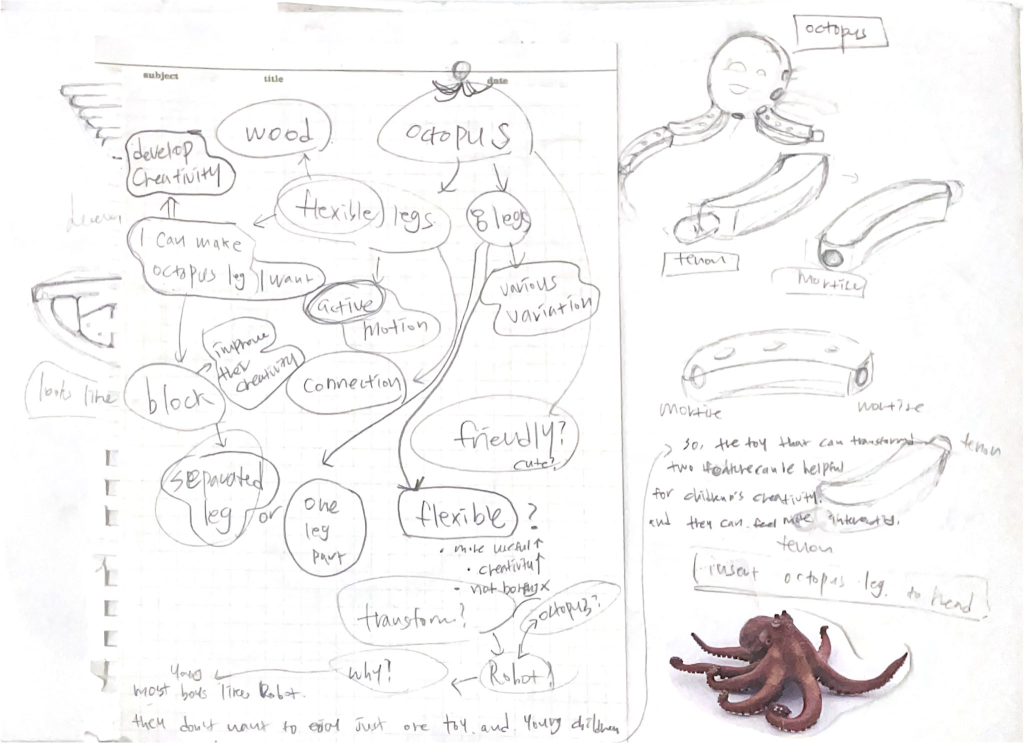 subject title date
octopus
wood
octopus
develop
creativity
flexible legs
8 legs
I can make
octopus leg I want
active
motion
various
variation
improve
their
creativity
block
connection
looks like
friendly?
cute?
separated
leg
or
one
leg
part
flexible?
• more useful↑
• creativity↑
• not boring x
transform?
octopus?
Robot?
why?
Young
most boys likes Robot.
they don't want to just one toy. and young children
tenon
mortise
mortise
mortise
tenon
> so, the toy that can transformed
two feature can be helpful
for children's creativity.
and they can feel more interested.
tenon
insert octopus leg to head